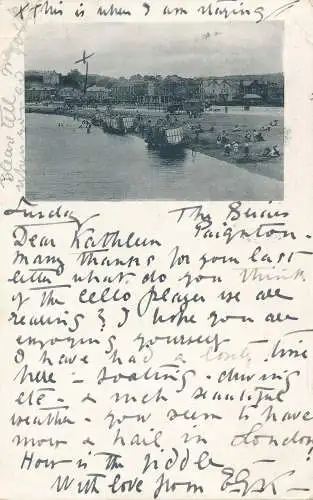 × This is where I am staying
Please tell M
when
Tuesday The
Paignton.
Dear Kathleen
Many thanks for your last
letter what do you think
of the cello player we are
rearing? I hope you are
enjoying yourself
I have had a lovely time
here - boating - driving
etc - & such beautiful
weather - you seem to have
snow & hail in London!
How is the fiddle
With love from